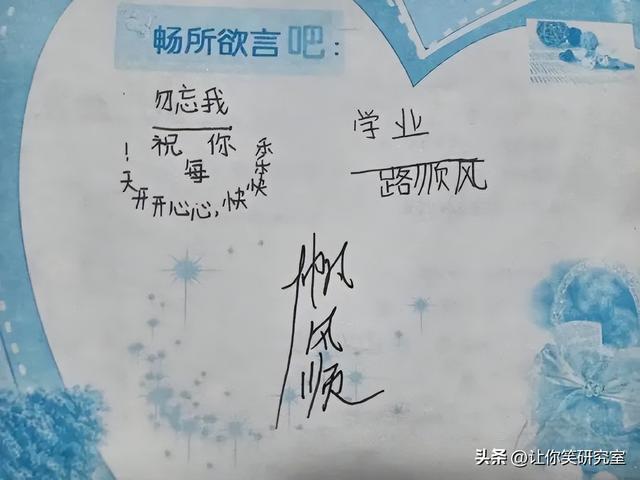 畅所欲言吧:
勿忘我
祝你
每
天开开心心,快快乐乐!
学业
一路顺风
一帆风顺
头条 @让你笑研究室